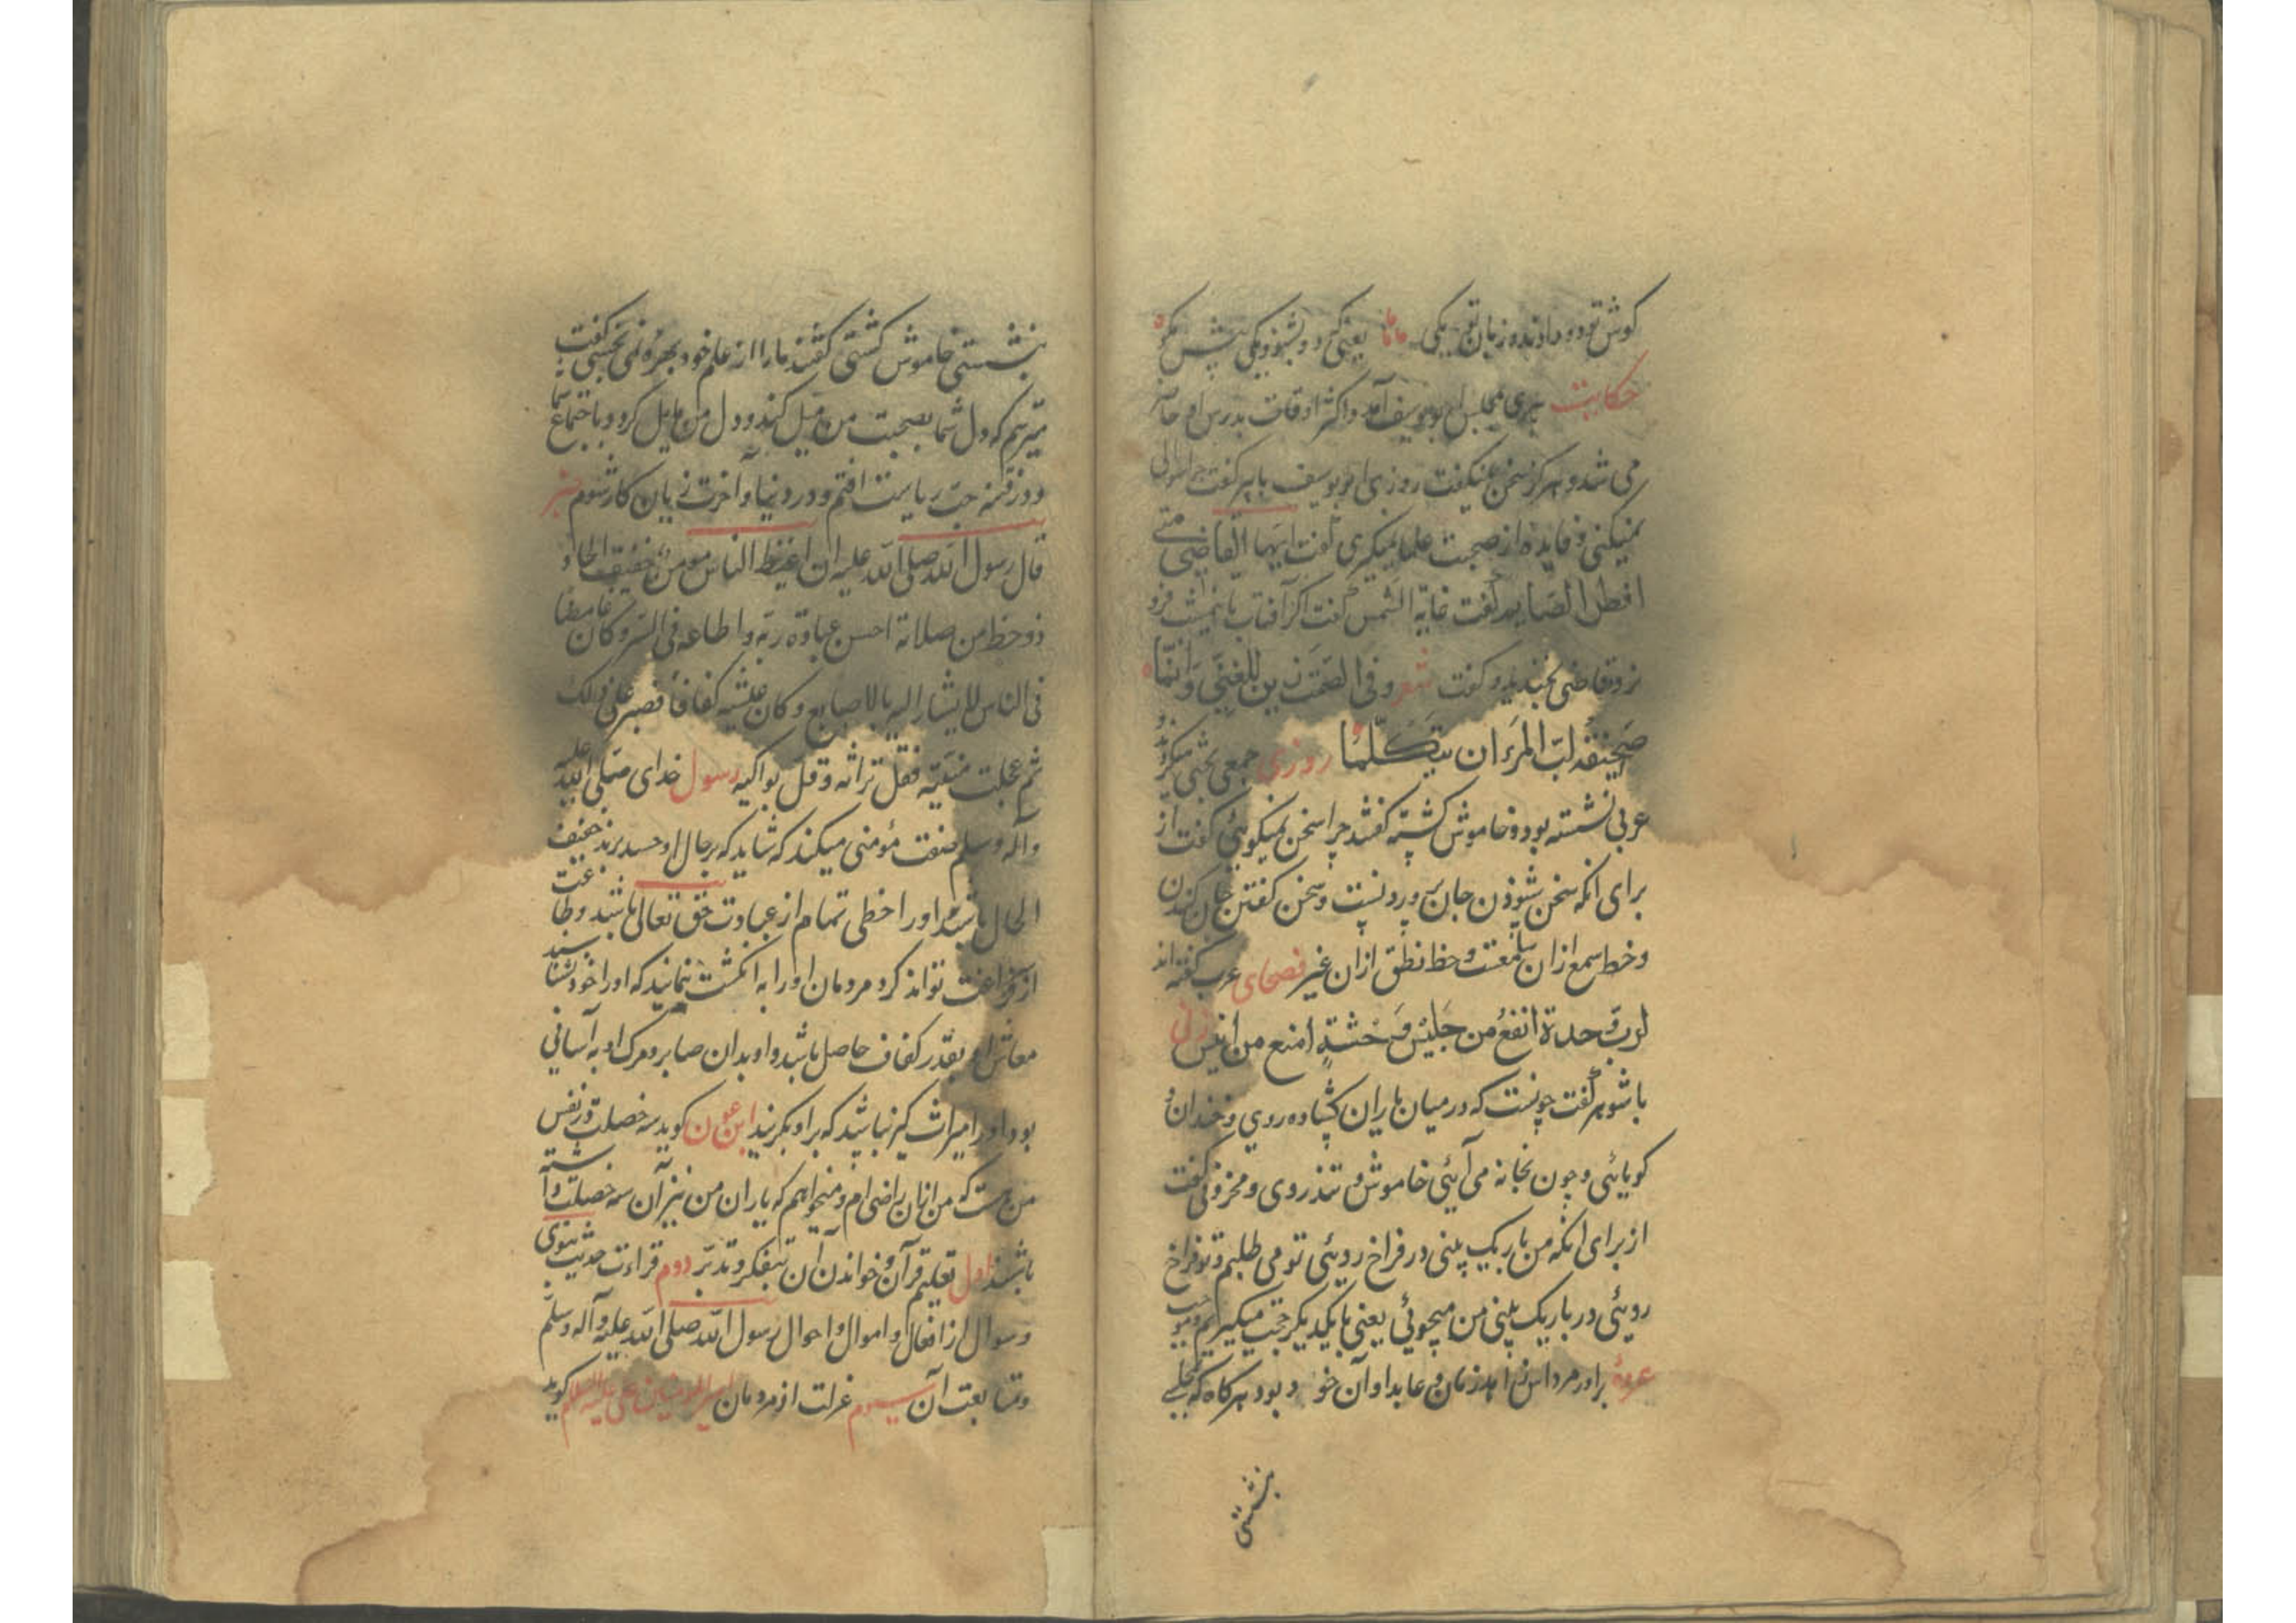 کوش تو دو دادند و زبان تو یکی یعنی که دو بشنو و یکی پیش مکو
حکایت پیری مجلس ابو یوسف آمد و اکثر اوقات بدرس او حاضر
می شد و هرکز سخن نمیکفت روزی ابو یوسف با پیر کفت چرا سوالی
نمیکنی و فایده از صحبت علما نمیکیری کفت ایها القاضی متی
افطر الصایم کفت غابة الشمس کفت اکر آفتاب تا نیم شب فرو
نرود قاضی بخندید و کفت شعر و فی الصمت زین للغبی و انما
صحیفة لب المرء ان یتکلما روزی جمعی بحثی میکردند و
عربی نشسته بود و خاموش کشته کفتند چرا سخن نمیکویی کفت از
برای انکه سخن شنودن جان پروردنست و سخن کفتن جان کندن
و حظ سمع ازان سامعست و حظ نطق ازان غیر فصحای عرب کفته اند
لرب وحدة انفع من جلیس و وحشة امنع من انیس زنی
با شوهر کفت چونست که در میان یاران کشاده روی و خندان و
کویائی و چون بخانه می آیئی خاموش و تندروی و محزونی کفت
از برای انکه من باریک بینی در فراخ رویئی تو می طلبم و تو فراخ
رویئی در باریک بینی من میجوئی یعنی با یکدیکر حجت میکیریم
عروه برادر مرداس زاهد زمان و عابد اوان خود بود هرکاه که بمجلسی
بنشستی
بنشستی خاموش کشتی کفتند ما را از علم خود بهره نمی بخشی کفت
میترسم که دل شما بصحبت من میل کند و دل من مایل کردد باجتماع شما
و در فتنه حب ریاست افتم و در دنیا و آخرت زیان کار شوم خبر
قال رسول الله صلی الله علیه ان اغبط الناس مومن خفیف الحاذ
ذو حظ من صلاة احسن عبادة ربه و اطاعه فی السر و کان غامضا
فی الناس لا یشار الیه بالاصابع و کان عیشه کفافا فصبر علی ذلک
ثم عجلت منیته فقل تراثه و قل بواکیه رسول خدای صلی الله علیه
و آله و سلم صفت مؤمنی میکند که شاید که بر حال او حسد برند خفیف
الحال باشد و او را حظی تمام از عبادت حق تعالی باشد و طاعت
از فراغت تواند کرد مردمان او را به انکشت ننمایند که او را خود نشناسند
معاش او بقدر کفاف حاصل باشد و او بدان صابر و مرک او به آسانی
بود و او را میراث کیر نباشد که بر او بکریند ابن عون کوید سه خصلت در نفس
من هست که من ازان راضی ام و میخواهم که یاران من نیز آن سه خصلت داشته
باشند اول تعلیم قرآن و خواندن آن بتفکر و تدبر دوم قراءت حدیث نبوی
و سوال از افعال و اموال و احوال رسول الله صلی الله علیه و آله و سلم
و متابعت آن سیوم عزلت از مردمان امیر المؤمنین علی علیه السلام کوید